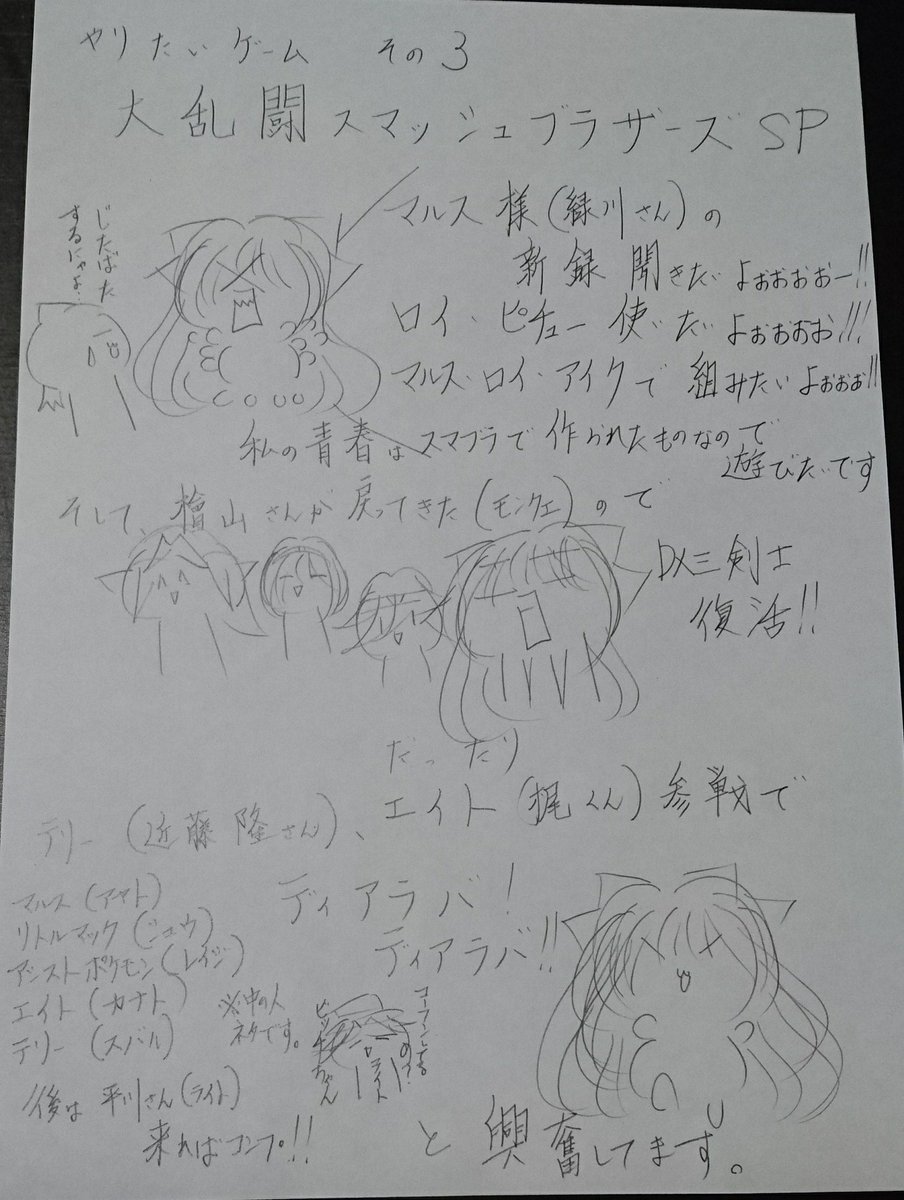 やりたいゲーム その3
大乱闘スマッシュブラザーズSP
じたばた
するにゃよ…
マルス様(緑川さん)の
新録聞きたいよぉぉぉぉー!!
ロイ・ピチュー使いたいよぉぉぉぉ!!!
マルス・ロイ・アイクで組みたいよぉぉぉ!!
私の青春はスマブラで作られたものなので
遊びたいです
そして、檜山さんが戻ってきた(モンクエ)ので
DX三剣士
復活!!
だったり
テリー(近藤隆さん)、エイト(梶くん)参戦で
ディアラバ!
ディアラバ!!
マルス(アヤト)
リトルマック(シュウ)
アシストポケモン(レイジ)
エイト(カナト)
テリー(スバル)
※中の人
ネタです。
ビッチちゃん
ライト
後は平川さん(ライト)
来ればコンプ!!
と興奮してます。